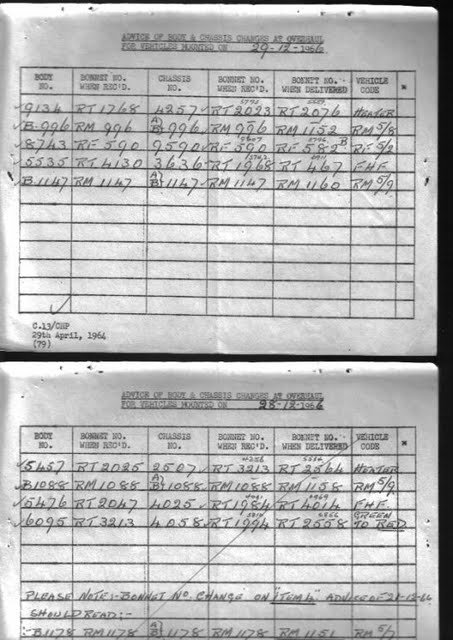 ADVICE OF BODY & CHASSIS CHANGES AT OVERHAUL
FOR VEHICLES MOUNTED ON 29-12-1966
BODY NO. BONNET NO. WHEN REC'D. CHASSIS NO. BONNET NO. WHEN REC'D. BONNET NO. WHEN DELIVERED VEHICLE CODE *
9134 RT 1768 4257 RT 2023 RT 2076 HEATER
B.996 RM 996 A) B) 996 RM 996 RM 1152 RM 5/8
8743 RF 590 9590 RF 590 RF 582 B RF 5/2
5535 RT 4130 3636 RT 1968 RT 467 FHF
B.1147 RM 1147 A) B) 1147 RM 1147 RM 1160 RM 5/9
C.13/CHP
29th April, 1964
(79)
ADVICE OF BODY & CHASSIS CHANGES AT OVERHAUL
FOR VEHICLES MOUNTED ON 28-12-1966
BODY NO. BONNET NO. WHEN REC'D. CHASSIS NO. BONNET NO. WHEN REC'D. BONNET NO. WHEN DELIVERED VEHICLE CODE *
5457 RT 2025 2507 RT 3213 RT 2564 HEATER
B1088 RM 1088 A) B) 1088 RM 1088 RM 1158 RM 5/9
5476 RT 2047 4025 RT 1984 RT 4014 FHF
6095 RT 3213 4058 RT 1994 RT 2558 GREEN TO RED
PLEASE NOTE:- BONNET NO. CHANGE ON "ITEM 4" ADVICE OF 21-12-66
SHOULD READ:-
B1178 RM 1178 A) B) 1178 RM 1178 RM 1151